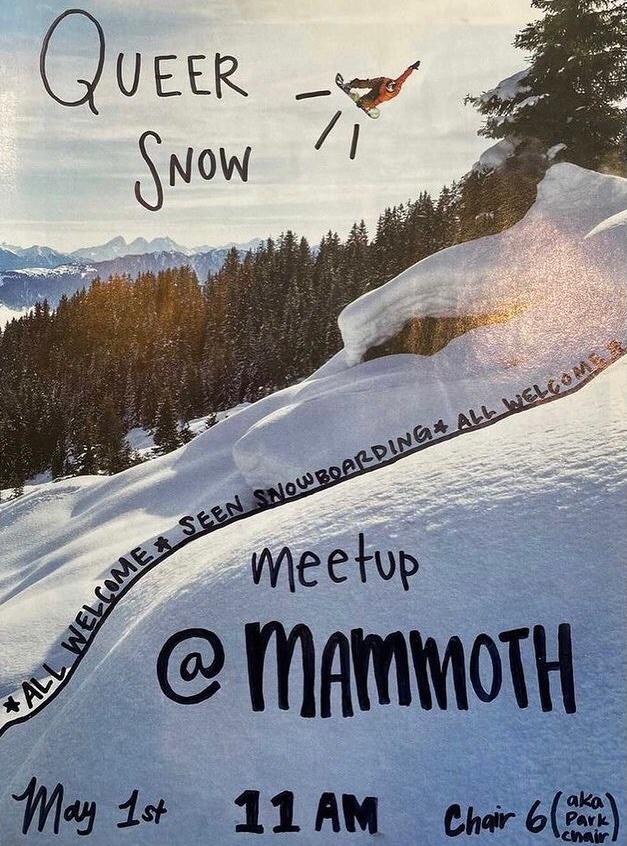 QUEER
SNOW
*ALL WELCOME* SEEN SNOWBOARDING* ALL WELCOME*
meetup
@MAMMOTH
May 1st 11 AM Chair 6 (aka Park chair)